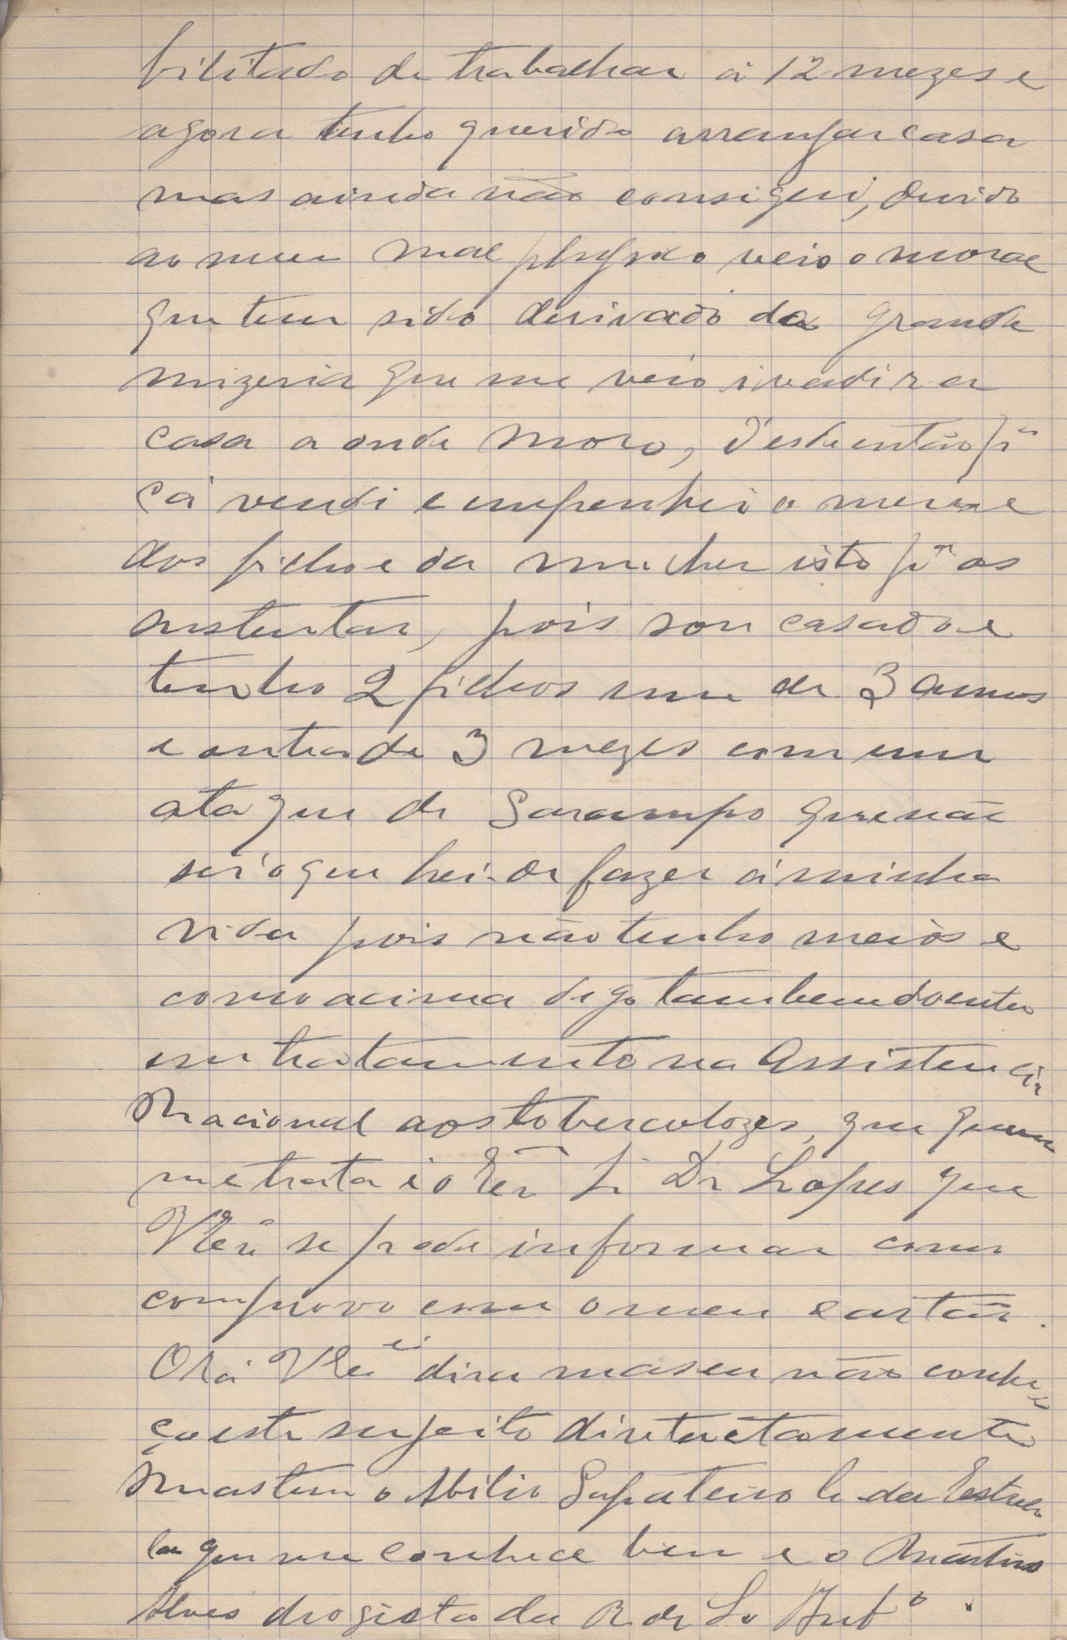 bilitado de trabalhar á 12 mezes e
agora tenho querido arranjar casa
mas ainda não consiguei, duvido
ao meu mal physico veio o moral
que tem sido derivado da grande
mizeria que me veio invadir a
casa a onde moro, d'esde então pª
cá vendi e empenhei o meu e
dos filhos e da mulher isto pª os
sustentar, pois sou casado e
tenho 2 filhos um de 3 annos
e outro de 3 mezes com um
ataque de Sarampo que não
sei o que hei-de fazer á minha
vida pois não tenho meios e
como acima digo tambem doente
em tratamento na Assistencia
Nacional aos toberculozes, que quem
me trata é o Dr Lopes que
se pode informar como
comprovo com o meu cartão.
Ora dira mas eu não conhe
ço este sujeito
mas tem o Abilio Sapateiro da Estrel
la que me conhece bem e o Martins
Alves drogista da R. de Stº Antº.